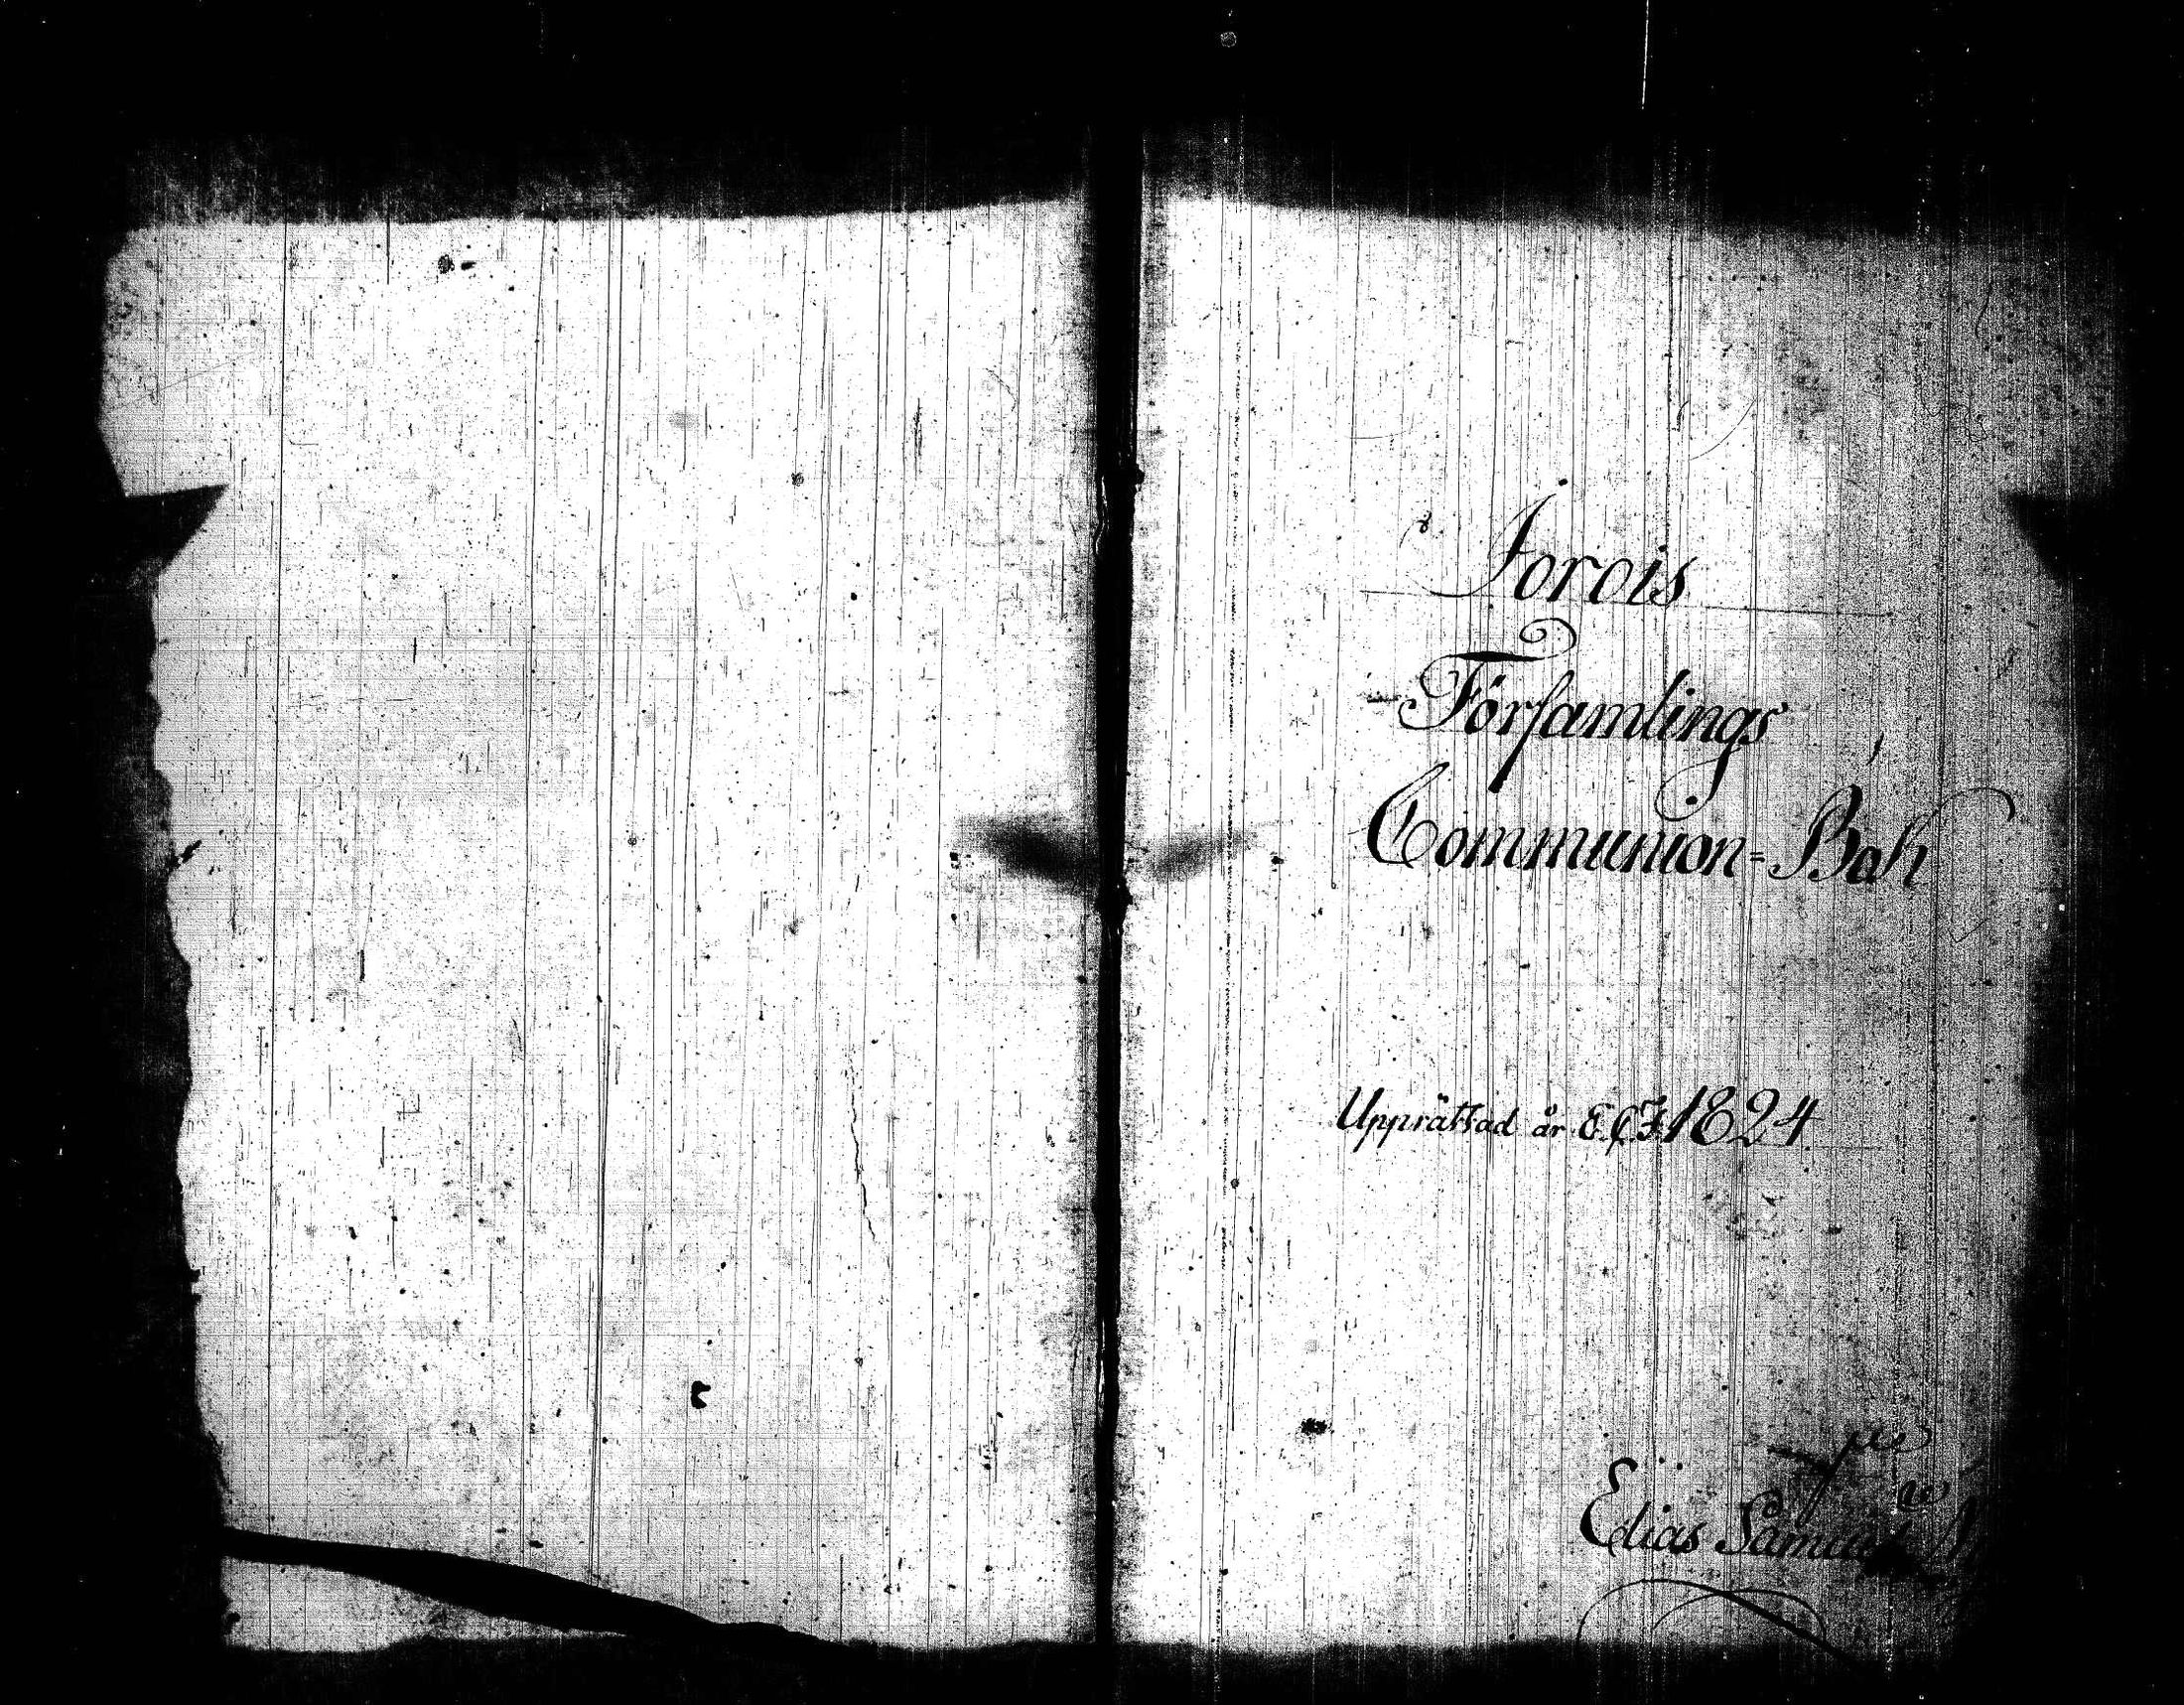 Jorois
Församlings
Communion=Bok
Upprättad år E.C.F. 1824
Elias Samuel